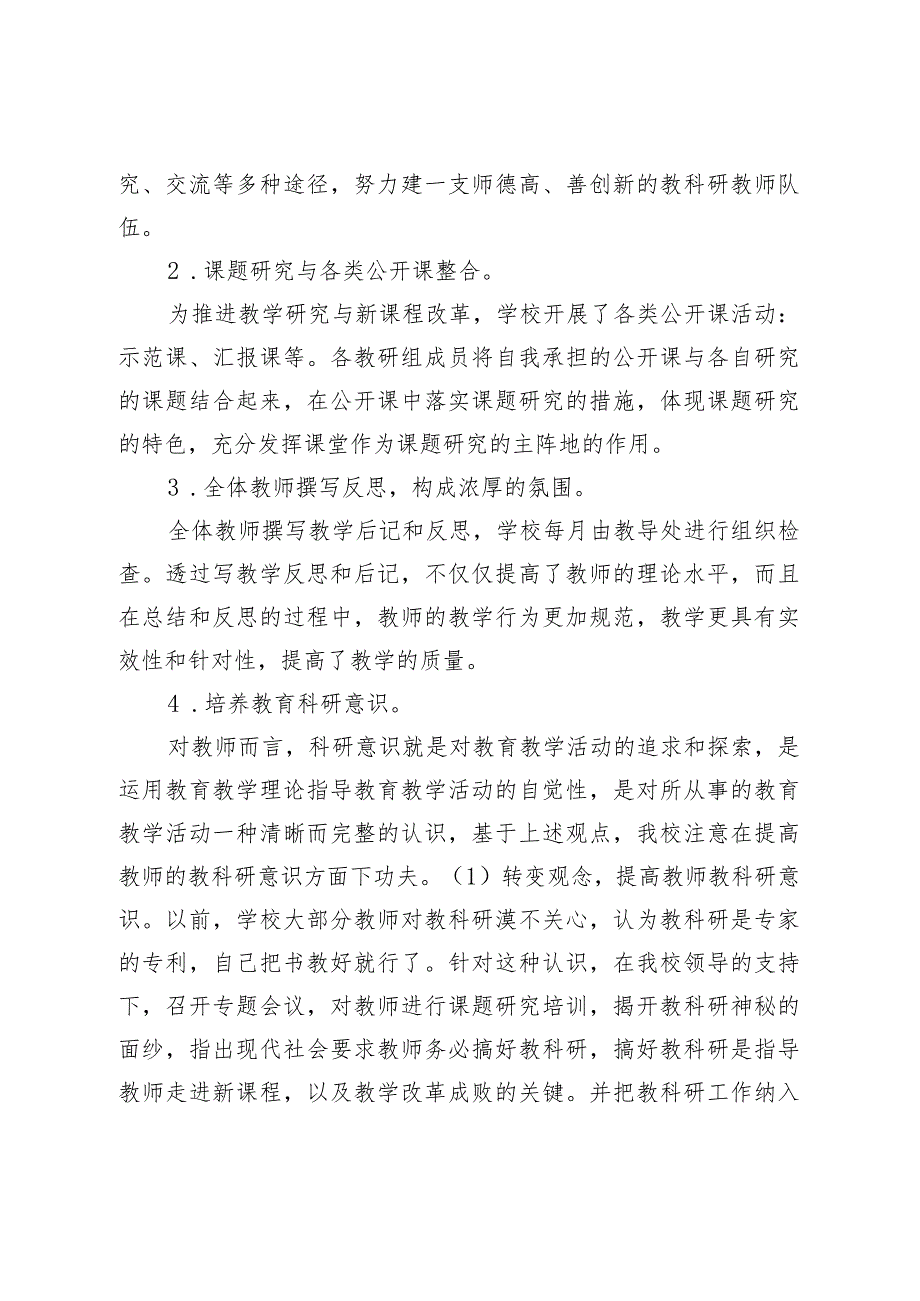 究、交流等多种途径，努力建一支师德高、善创新的教科研教师队
伍。
2 .课题研究与各类公开课整合。
为推进教学研究与新课程改革，学校开展了各类公开课活动：
示范课、汇报课等。各教研组成员将自我承担的公开课与各自研究
的课题结合起来，在公开课中落实课题研究的措施，体现课题研究
的特色，充分发挥课堂作为课题研究的主阵地的作用。
3 .全体教师撰写反思，构成浓厚的氛围。
全体教师撰写教学后记和反思，学校每月由教导处进行组织检
查。透过写教学反思和后记，不仅仅提高了教师的理论水平，而且
在总结和反思的过程中，教师的教学行为更加规范，教学更具有实
效性和针对性，提高了教学的质量。
4 .培养教育科研意识。
对教师而言，科研意识就是对教育教学活动的追求和探索，是
运用教育教学理论指导教育教学活动的自觉性，是对所从事的教育
教学活动一种清晰而完整的认识，基于上述观点，我校注意在提高
教师的教科研意识方面下功夫。（1）转变观念，提高教师教科研意
识。以前，学校大部分教师对教科研漠不关心，认为教科研是专家
的专利，自己把书教好就行了。针对这种认识，在我校领导的支持
下，召开专题会议，对教师进行课题研究培训，揭开教科研神秘的
面纱，指出现代社会要求教师务必搞好教科研，搞好教科研是指导
教师走进新课程，以及教学改革成败的关键。并把教科研工作纳入